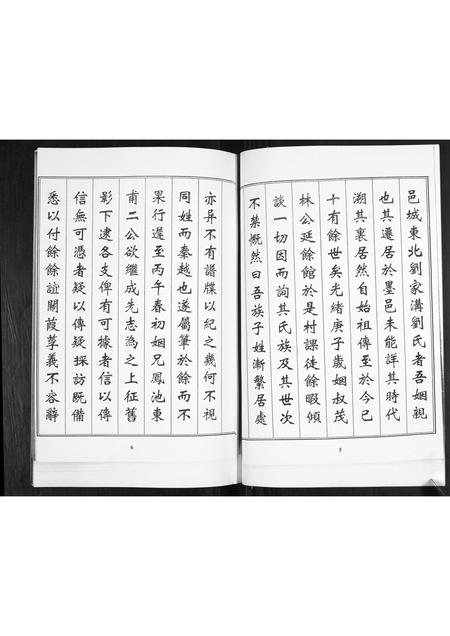 邑城東北劉家溝劉氏者吾姻親
也其遷居於墨邑未能詳其時代
溯其裏居然自始祖傳至於今已
十有餘世矣光緒庚子歲姻叔茂
林公延餘館於是村課徒餘暇傾
談一切因而詢其氏族及其世次
不禁慨然曰吾族子姓漸繁居處
5
亦异不有譜牒以紀之幾何不視
同姓而秦越也遂屬筆於餘而不
果行遲至丙午春初姻兄鳳池東
甫二公欲繼成先志為之上征舊
影下逮各支俾有可據者信以傳
信無可憑者疑以傳疑採訪既備
悉以付餘餘誼關葭莩義不容辭
6